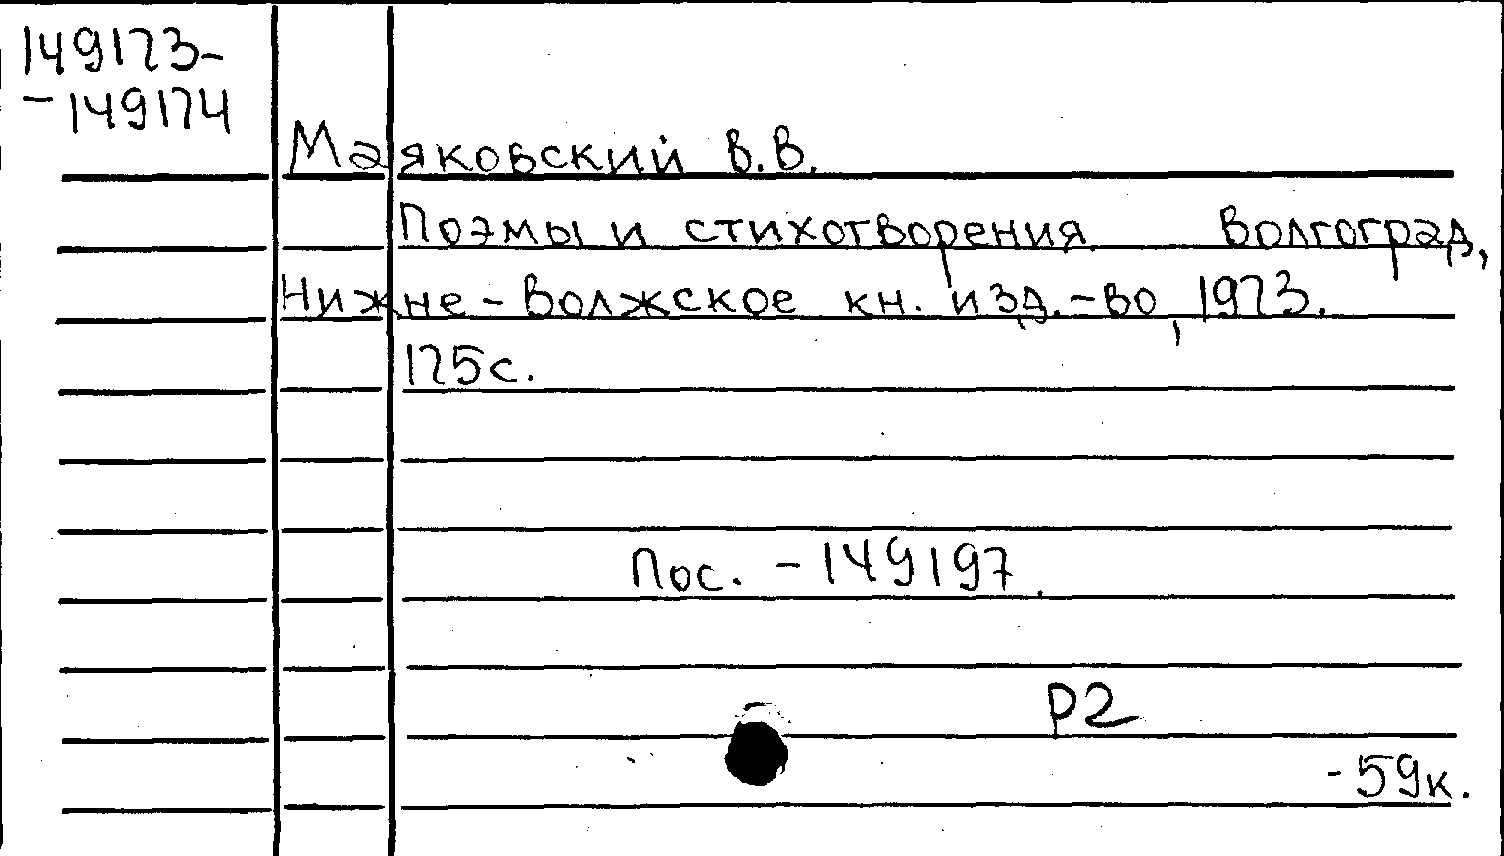 149173-
-149174
Маяковский В.В.
Поэмы и стихотворения. Волгоград,
Нижне-Волжское кн. изд.-во, 1973.
175с.
Пос. - 149197.
Р2
-59к.